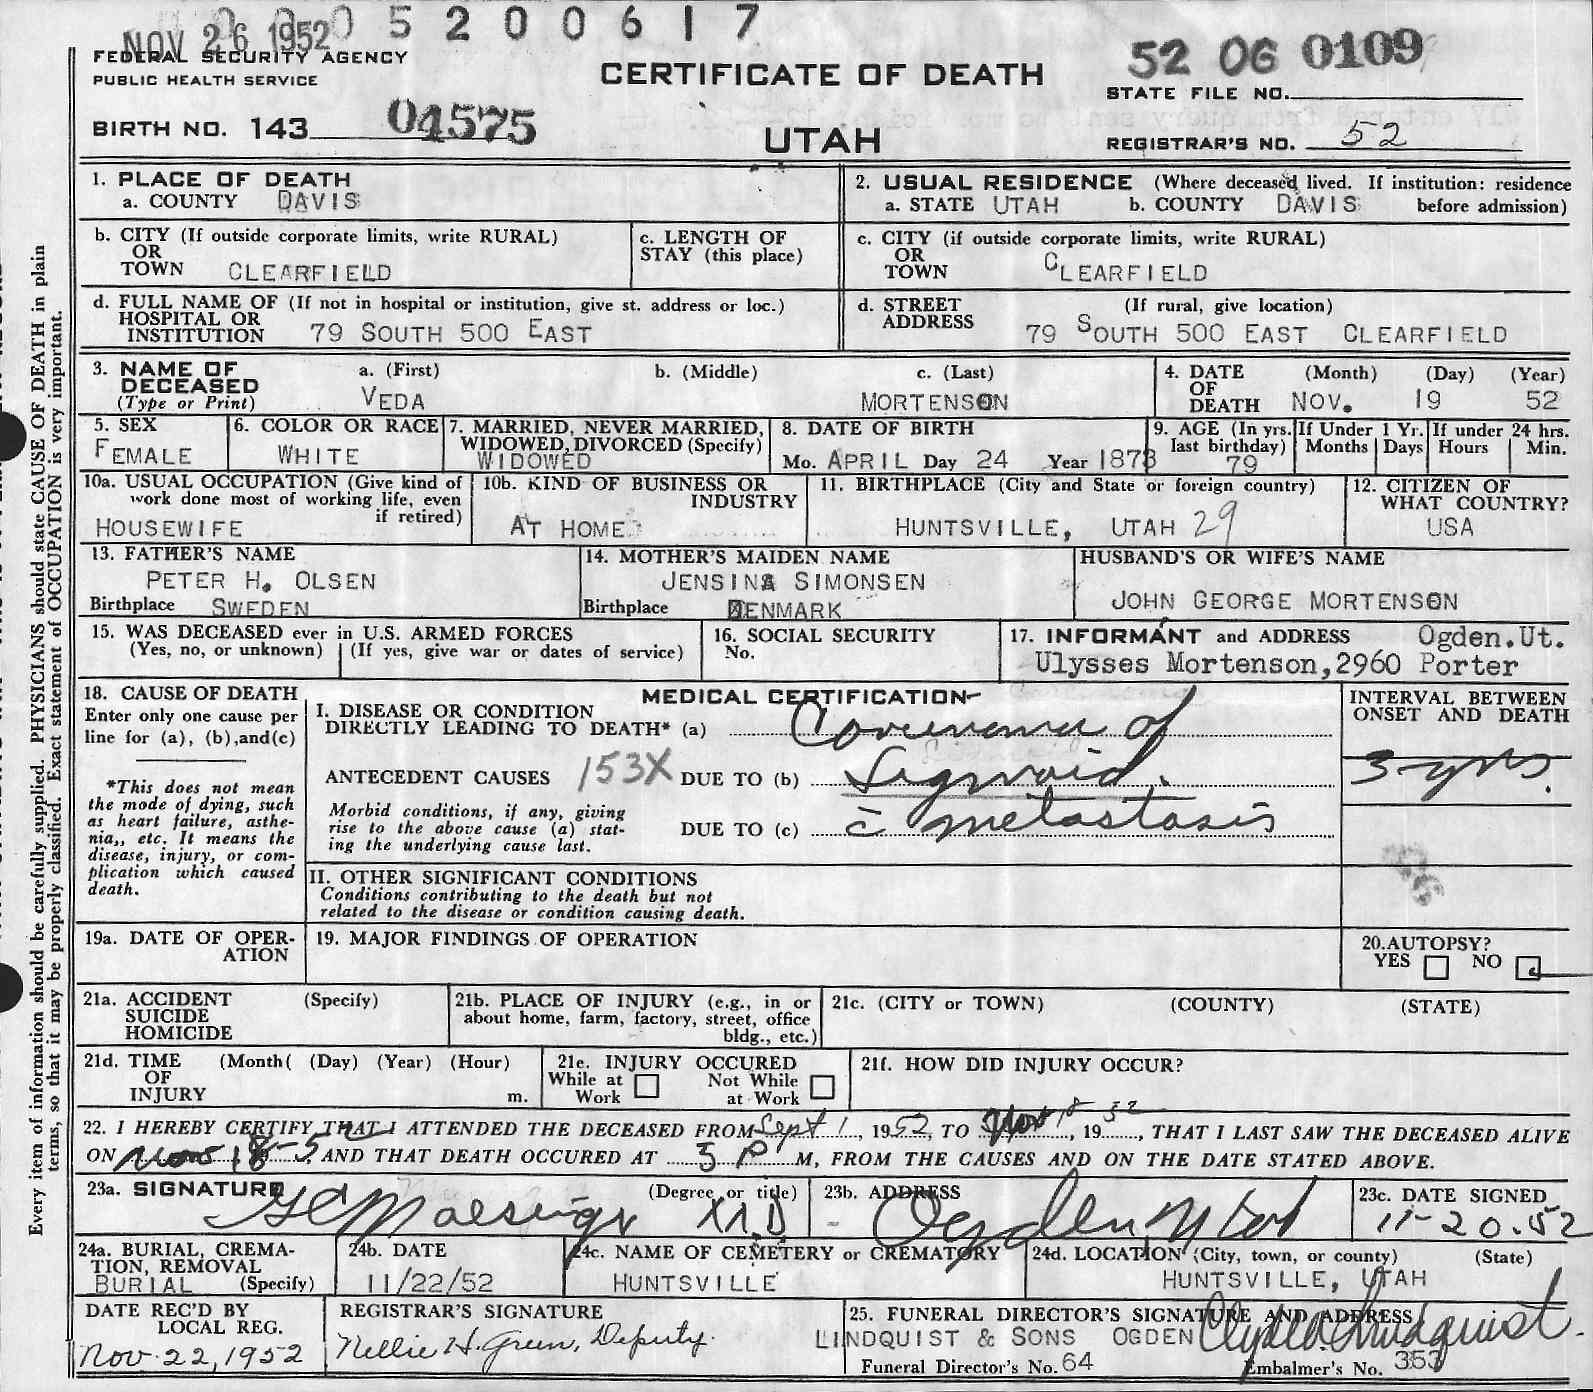 NOV 26 1952 0 5 2 0 0 6 1 7
FEDERAL SECURITY AGENCY
PUBLIC HEALTH SERVICE
CERTIFICATE OF DEATH
52 06 0109
STATE FILE NO.
BIRTH NO. 143 04575
UTAH
REGISTRAR'S NO. 52
1. PLACE OF DEATH
a. COUNTY DAVIS
2. USUAL RESIDENCE (Where deceased lived. If institution: residence before admission)
a. STATE UTAH b. COUNTY DAVIS
b. CITY (If outside corporate limits, write RURAL)
OR
TOWN CLEARFIELD
c. LENGTH OF
STAY (this place)
c. CITY (if outside corporate limits, write RURAL)
OR
TOWN CLEARFIELD
d. FULL NAME OF (If not in hospital or institution, give st. address or loc.)
HOSPITAL OR
INSTITUTION 79 SOUTH 500 EAST
d. STREET (If rural, give location)
ADDRESS 79 SOUTH 500 EAST CLEARFIELD
3. NAME OF DECEASED
(Type or Print)
a. (First) b. (Middle) c. (Last)
VEDA MORTENSON
4. DATE OF DEATH (Month) (Day) (Year)
NOV. 19 52
5. SEX
FEMALE
6. COLOR OR RACE
WHITE
7. MARRIED, NEVER MARRIED,
WIDOWED, DIVORCED (Specify)
WIDOWED
8. DATE OF BIRTH
Mo. APRIL Day 24 Year 1873
9. AGE (In yrs. last birthday)
79
If Under 1 Yr.
Months Days
If under 24 hrs.
Hours Min.
10a. USUAL OCCUPATION (Give kind of
work done most of working life, even
if retired)
HOUSEWIFE
10b. KIND OF BUSINESS OR
INDUSTRY
AT HOME
11. BIRTHPLACE (City and State or foreign country)
HUNTSVILLE, UTAH 29
12. CITIZEN OF
WHAT COUNTRY?
USA
13. FATHER'S NAME
PETER H. OLSEN
Birthplace SWEDEN
14. MOTHER'S MAIDEN NAME
JENSINA SIMONSEN
Birthplace DENMARK
HUSBAND'S OR WIFE'S NAME
JOHN GEORGE MORTENSON
15. WAS DECEASED ever in U.S. ARMED FORCES
(Yes, no, or unknown) (If yes, give war or dates of service)
16. SOCIAL SECURITY
No.
17. INFORMANT and ADDRESS Ogden.Ut.
Ulysses Mortenson,2960 Porter
18. CAUSE OF DEATH
Enter only one cause per
line for (a), (b),and(c)
*This does not mean
the mode of dying, such
as heart failure, asthe-
nia,, etc. It means the
disease, injury, or com-
plication which caused
death.
MEDICAL CERTIFICATION
I. DISEASE OR CONDITION
DIRECTLY LEADING TO DEATH* (a) Carcinoma of
ANTECEDENT CAUSES 153X DUE TO (b) Sigmoid.
Morbid conditions, if any, giving
rise to the above cause (a) stat-
ing the underlying cause last.
DUE TO (c) c̄ metastasis
INTERVAL BETWEEN
ONSET AND DEATH
3 yrs.
II. OTHER SIGNIFICANT CONDITIONS
Conditions contributing to the death but not
related to the disease or condition causing death.
19a. DATE OF OPER-
ATION
19. MAJOR FINDINGS OF OPERATION
20.AUTOPSY?
YES NO
21a. ACCIDENT (Specify)
SUICIDE
HOMICIDE
21b. PLACE OF INJURY (e.g., in or
about home, farm, factory, street, office
bldg., etc.)
21c. (CITY or TOWN) (COUNTY) (STATE)
21d. TIME (Month( (Day) (Year) (Hour)
OF
INJURY m.
21e. INJURY OCCURED
While at Work Not While at Work
21f. HOW DID INJURY OCCUR?
22. I HEREBY CERTIFY THAT I ATTENDED THE DECEASED FROM Sept 1, 1952, TO Nov 18 52, 19....., THAT I LAST SAW THE DECEASED ALIVE
ON Nov 18-52, AND THAT DEATH OCCURED AT 5 P M, FROM THE CAUSES AND ON THE DATE STATED ABOVE.
23a. SIGNATURE (Degree or title)
M.D
23b. ADDRESS
Ogden Utah
23c. DATE SIGNED
11-20-52
24a. BURIAL, CREMA-
TION, REMOVAL
BURIAL (Specify)
24b. DATE
11/22/52
24c. NAME OF CEMETERY or CREMATORY
HUNTSVILLE
24d. LOCATION (City, town, or county) (State)
HUNTSVILLE, UTAH
DATE REC'D BY
LOCAL REG.
Nov. 22, 1952
REGISTRAR'S SIGNATURE
Nellie H. Green, Deputy.
25. FUNERAL DIRECTOR'S SIGNATURE AND ADDRESS
LINDQUIST & SONS OGDEN Clyde Lindquist
Funeral Director's No. 64 Embalmer's No. 353
Every item of information should be carefully supplied. PHYSICIANS should state CAUSE OF DEATH in plain
terms, so that it may be properly classified. Exact statement of OCCUPATION is very important.